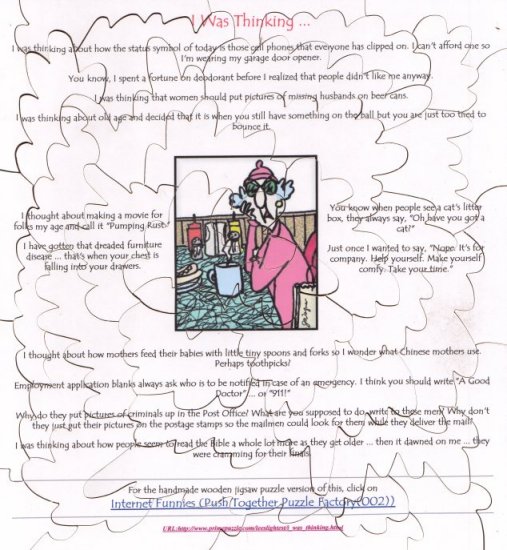 I Was Thinking ...
I was thinking about how the status symbol of today is those cell phones that everyone has clipped on. I can't afford one so
I'm wearing my garage door opener.
You know, I spent a fortune on deodorant before I realized that people didn't like me anyway.
I was thinking that women should put pictures of missing husbands on beer cans.
I was thinking about old age and decided that it is when you still have something on the ball but you are just too tired to
bounce it.
I thought about making a movie for
folks my age and call it "Pumping Rust."
I have gotten that dreaded furniture
disease ... that's when your chest is
falling into your drawers.
You know when people see a cat's litter
box, they always say, "Oh have you got a
cat?"
Just once I wanted to say, "Nope. It's for
company. Help yourself. Make yourself
comfy. Take your time."
I thought about how mothers feed their babies with little tiny spoons and forks so I wonder what Chinese mothers use.
Perhaps toothpicks?
Employment application blanks always ask who is to be notified in case of an emergency. I think you should write "A Good
Doctor" ... or "911!"
Why do they put pictures of criminals up in the Post Office? What are you supposed to do, write to these men? Why don't
they just put their pictures on the postage stamps so the mailmen could look for them while they deliver the mail?
I was thinking about how people seem to read the Bible a whole lot more as they get older ... then it dawned on me ... they
were cramming for their finals.
For the handmade wooden jigsaw puzzle version of this, click on
Internet Funnies (Push/Together Puzzle Factory(002))